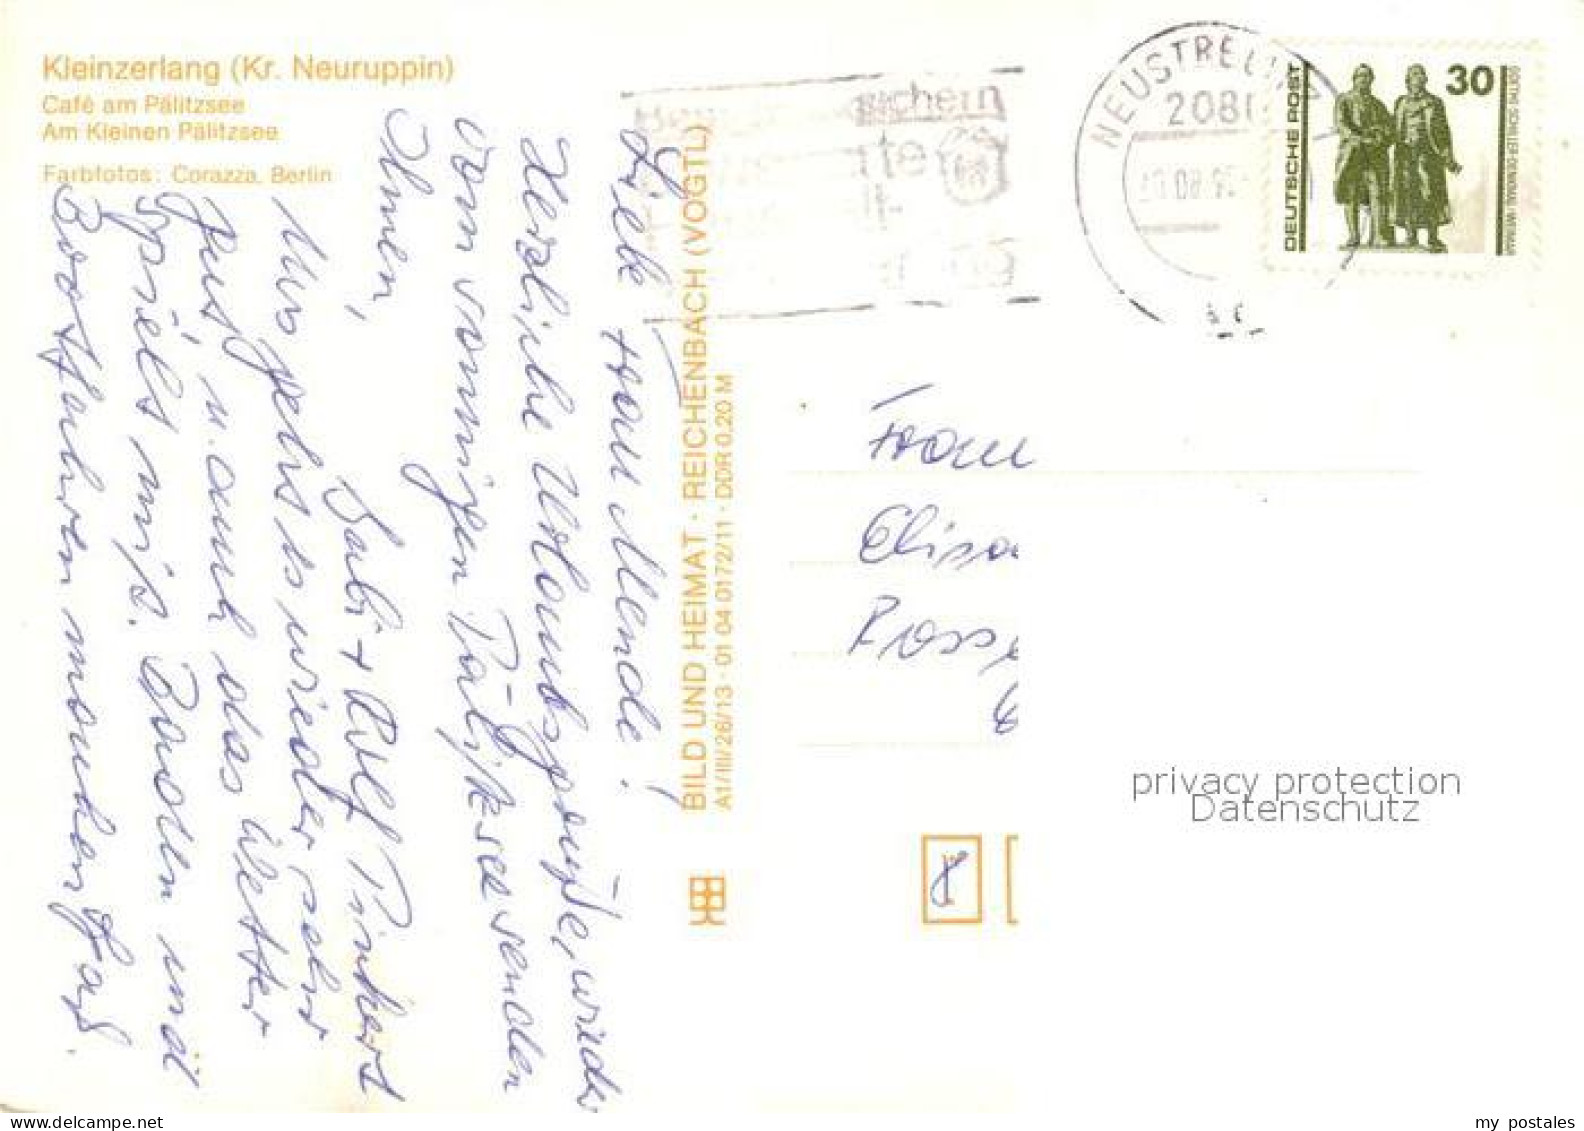 Kleinzerlang (Kr. Neuruppin)
Café am Pälitzsee
Am Kleinen Pälitzsee
Farbfotos: Corazza, Berlin
Liebe Frau Mende!
Herzliche Urlaubsgrüße, wieder
vom sonnigen Pälitzsee senden
Ihnen,
Babi + Rolf Pinkert
Uns gehts wieder sehr
gut u. auch das Wetter
spielt mit. Baden und
Bootfahren machen Spaß.
BILD UND HEIMAT · REICHENBACH (VOGTL)
A1/III/26/13 · 01 04 0172/11 · DDR 0,20 M
sichern
NEUSTREL
208
DEUTSCHE POST
30
GOETHE-SCHILLER-DENKMAL · WEIMAR
Frau
Elisa
Ross
8
privacy protection
Datenschutz
my postales